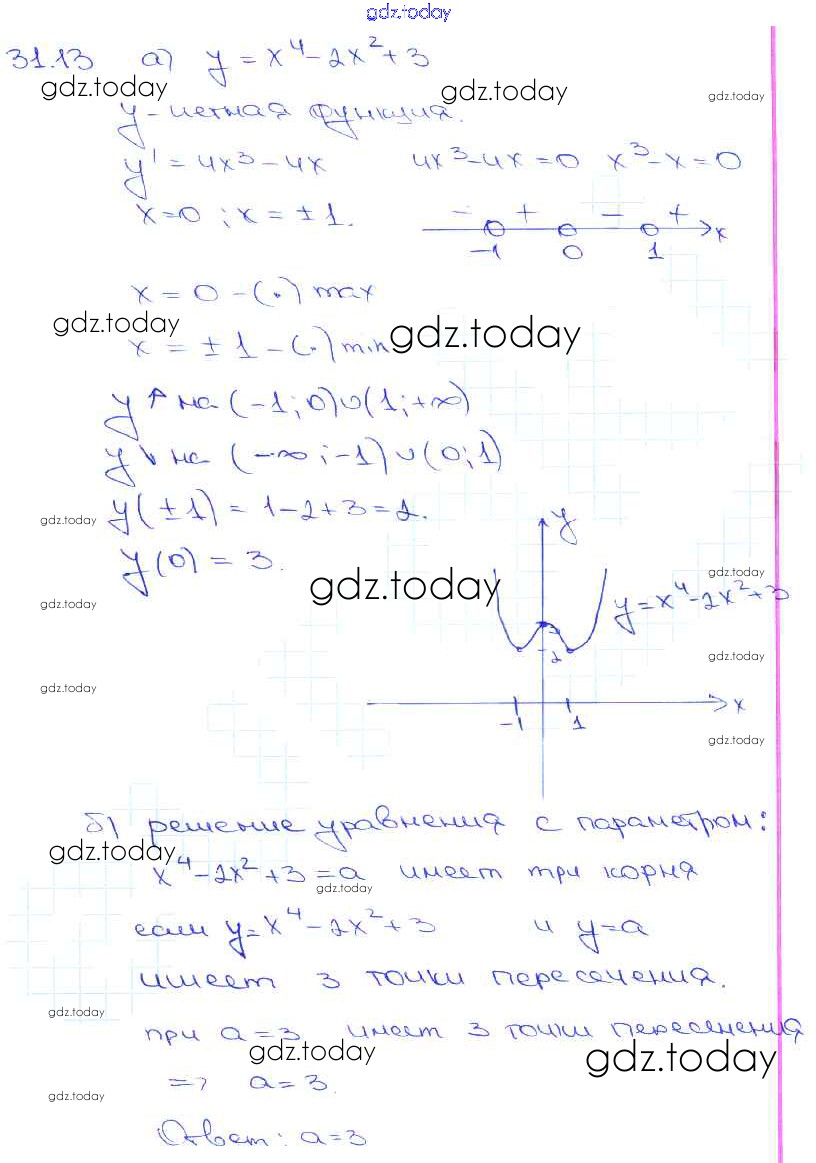 gdz.today
31.13 а) y = x⁴ - 2x² + 3
gdz.today gdz.today gdz.today
y - четная функция.
y' = 4x³ - 4x 4x³ - 4x = 0 x³ - x = 0
x = 0 ; x = ± 1.
- + - + x
-1 0 1
x = 0 - (.) max
gdz.today gdz.today
x = ± 1 - (.) min
y ↑ на (-1; 0) ∪ (1; +∞)
y ↓ на (-∞; -1) ∪ (0; 1)
gdz.today y(± 1) = 1 - 2 + 3 = 2.
y
y(0) = 3.
gdz.today
gdz.today gdz.today
y = x⁴ - 2x² + 3
3
2
gdz.today
gdz.today
x
-1 1
gdz.today
б) решение уравнения с параметром:
gdz.today
x⁴ - 2x² + 3 = a имеет три корня
gdz.today
если y = x⁴ - 2x² + 3 и y = a
имеет 3 точки пересечения.
gdz.today
при a = 3 имеет 3 точки пересечения
gdz.today gdz.today
=> a = 3.
gdz.today
Ответ: a = 3